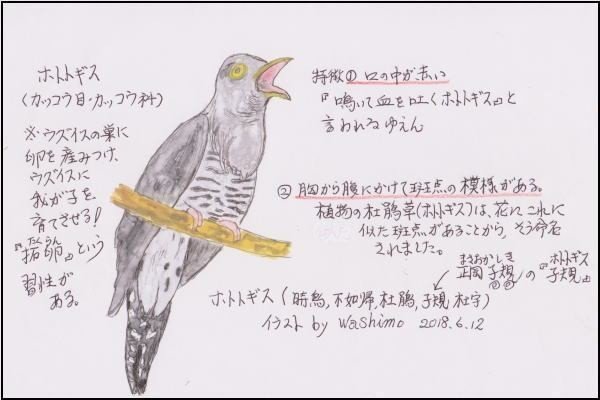 ホトトギス
(カッコウ目・カッコウ科)
※ウグイスの巣に
卵を産みつけ、
ウグイスに
我が子を
育てさせる!
『托卵』という
たくらん
習性が
ある。
特徴① 口の中が赤い
『鳴いて血を吐くホトトギス』と
言われるゆえん
② 胸から腹にかけて斑点の模様がある。
植物の杜鵑草(ホトトギス)は、花にこれに
似た斑点があることから、そう命名
されました。
まさおかしき
正岡子規の『子規』
ホトトギス
ホトトギス(時鳥,不如帰,杜鵑,子規,杜宇)
イラスト by Washimo 2018.6.12